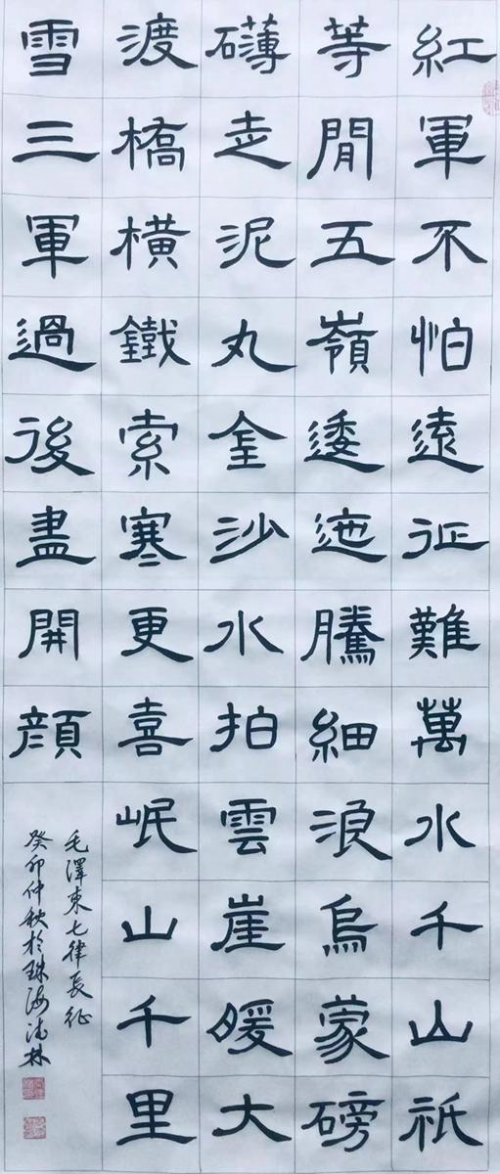 紅軍不怕遠征難萬水千山祇
等閒五嶺逶迤騰細浪烏蒙磅
礴走泥丸金沙水拍雲崖暖大
渡橋橫鐵索寒更喜岷山千里
雪三軍過後盡開顏
毛澤東七律長征
癸卯仲秋於珠海林